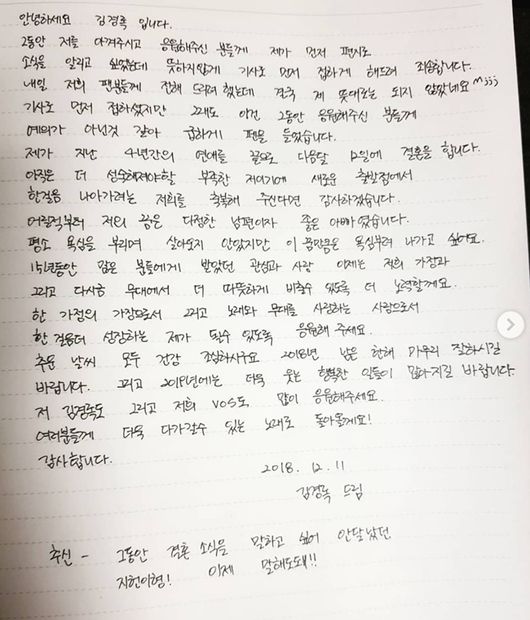 안녕하세요 김경록 입니다.
그동안 저를 아껴주시고 응원해주신 분들께 제가 먼저 편지로
소식을 알리고 싶었는데 뜻하지않게 기사로 먼저 접하게 해드려 죄송합니다.
내일 저희 팬분들께 전해 드리려 했는데 결국 제 뜻대로는 되지 않았네요 ^^;;;
기사로 먼저 접하셨지만 그래도 이건 그동안 응원해주신 분들께
예의가 아닌것 같아 급하게 펜을 들었습니다.
제가 지난 4년간의 연애를 끝으로 다음달 12일에 결혼을 합니다.
아직은 더 성숙해져야할 부족한 저이기에 새로운 출발점에서
한걸음 나아가려는 저희를 축복해 주신다면 감사하겠습니다.
어릴적부터 저의 꿈은 다정한 남편이자 좋은 아빠였습니다.
평소 욕심을 부리며 살아오지 않았지만 이 꿈만큼은 욕심부려 나가고 싶어요.
15년동안 많은 분들에게 받았던 관심과 사랑 이제는 저희 가정과
그리고 다시금 무대에서 더 따뜻하게 비출수 있도록 더 노력할게요.
한 가정의 가장으로서 그리고 노래와 무대를 사랑하는 사람으로서
한 걸음더 성장하는 제가 될수 있도록 응원해 주세요.
추운 날씨 모두 건강 조심하시구요 2018년 남은 한해 마무리 잘하시길
바랍니다. 그리고 2019년에는 더욱 웃는 행복한 일들이 많아지길 바랍니다
저 김경록도 그리고 저희 VOS도 많이 응원해주세요.
여러분들께 더욱 다가갈수 있는 노래로 돌아올게요!
감사합니다.
2018. 12. 11
김경록 드림
추신 - 그동안 결혼 소식을 말하고 싶어 안달났던
지헌이형! 이제 말해도돼!!